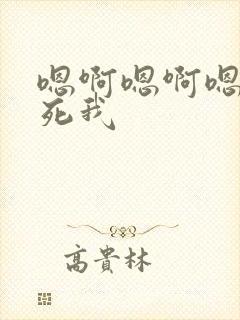 嗯啊嗯啊嗯
死我
高貴林